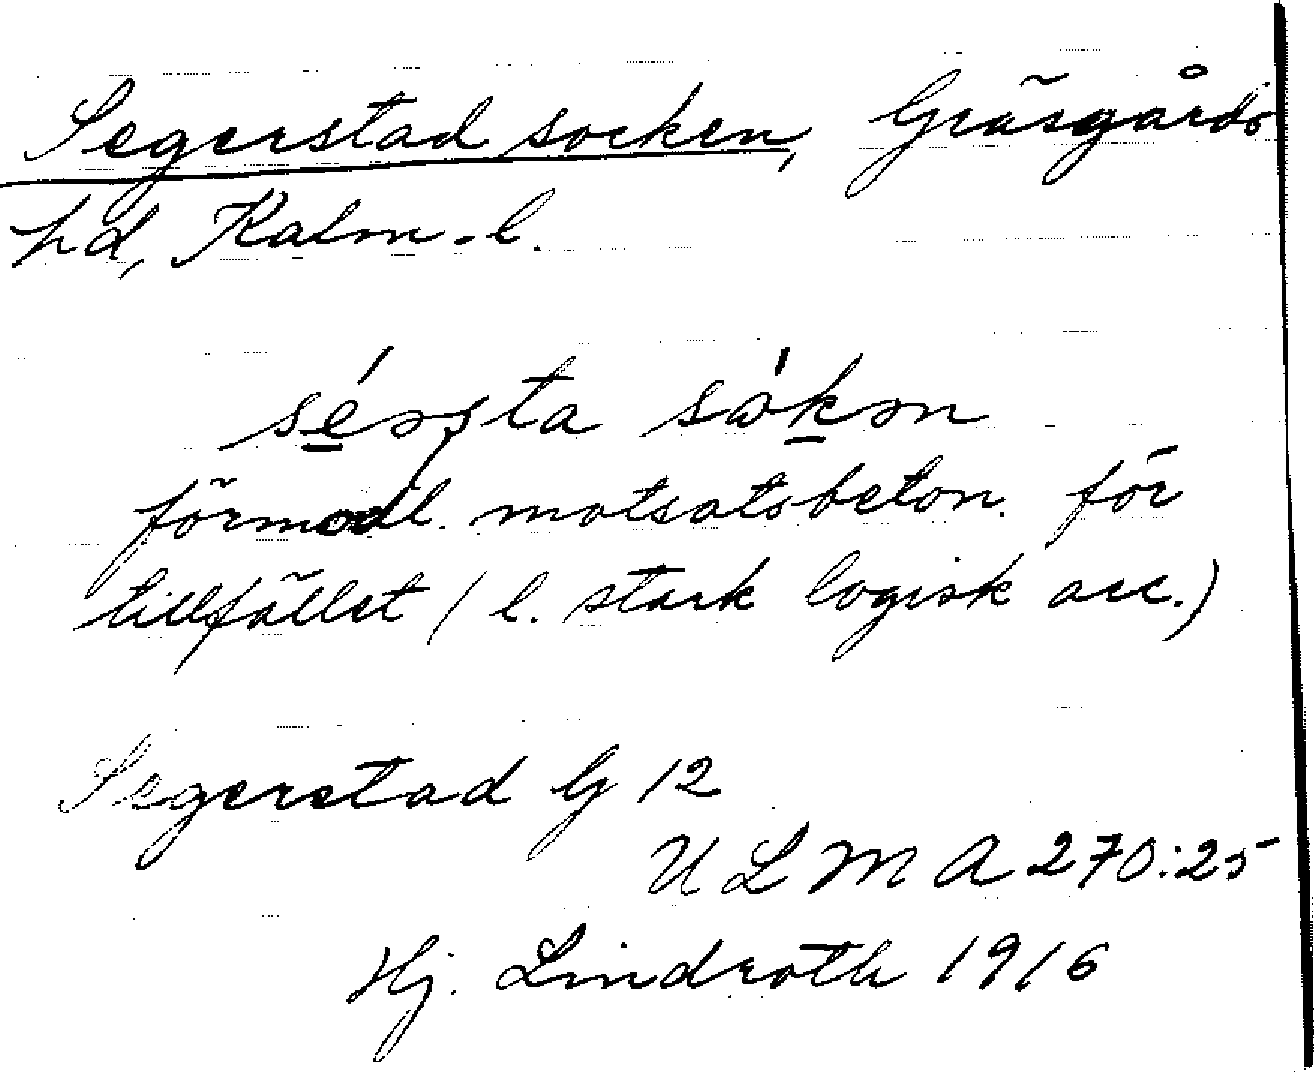 Segerstad socken, Gräsgårds
hd, Kalm. l.
förmodl. motsatsbeton. för
tillfället (l. stark logisk acc.)
Segerstad G 12
ULMA 270:25
Hj. Lindroth 1916